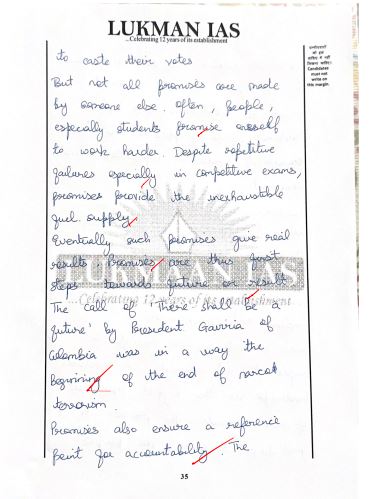 LUKMAN IAS
...Celebrating 12 years of its establishment
उम्मीदवारों को इस हाशिए में नहीं लिखना चाहिए।
Candidates must not write on this margin
to caste their votes
But not all promises are made
by someone else. Often, people,
especially students promise oneself
to work harder. Despite repetitive
failures especially in competitive exams,
promises provide the inexhaustible
fuel supply.
Eventually such promises give real
results. Promises are thus first
steps towards future or result
The call of 'There shall be a
future' by President Gavria of
Colombia was in a way the
beginning of the end of narco
terrorism.
Promises also ensure a reference
point for accountability. The
LUKMAAN IAS
...Celebrating 12 years of its establishment
35